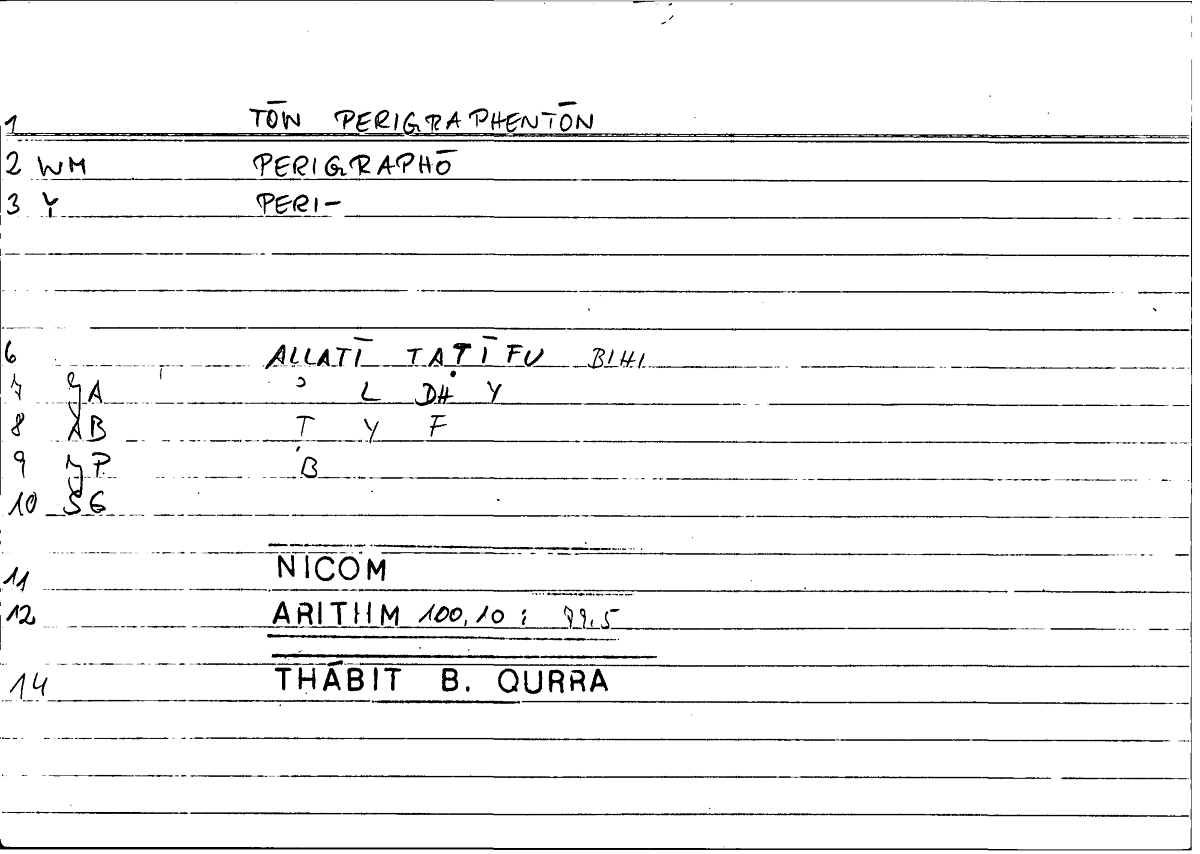 1 TŌN PERIGRAPHENTŌN
2 WM PERIGRAPHŌ
3 Y PERI-
6 ALLATĪ TAṬĪFU BIHI
7 A ʾ L DH Y
8 AB Ṭ Y F
9 P B
10 SG
11 NICOM
12 ARITHM 100,10 : 99,5
14 THĀBIT B. QURRA